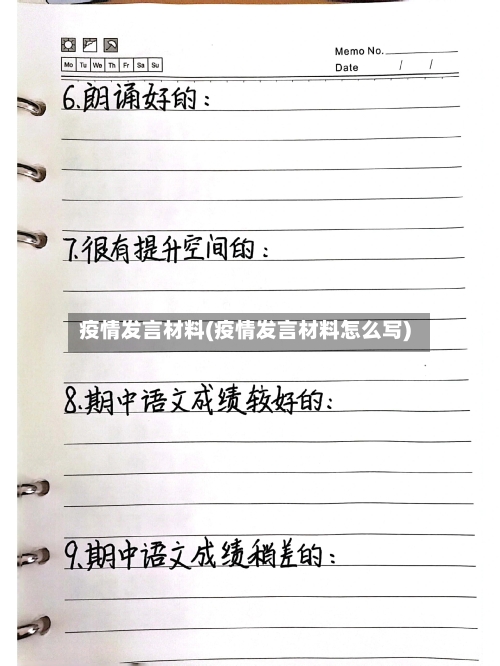 Memo No.
Mo Tu We Th Fr Sa Su
Date / /
6.朗诵好的:
7.很有提升空间的:
疫情发言材料(疫情发言材料怎么写)
8.期中语文成绩较好的:
9.期中语文成绩稍差的: